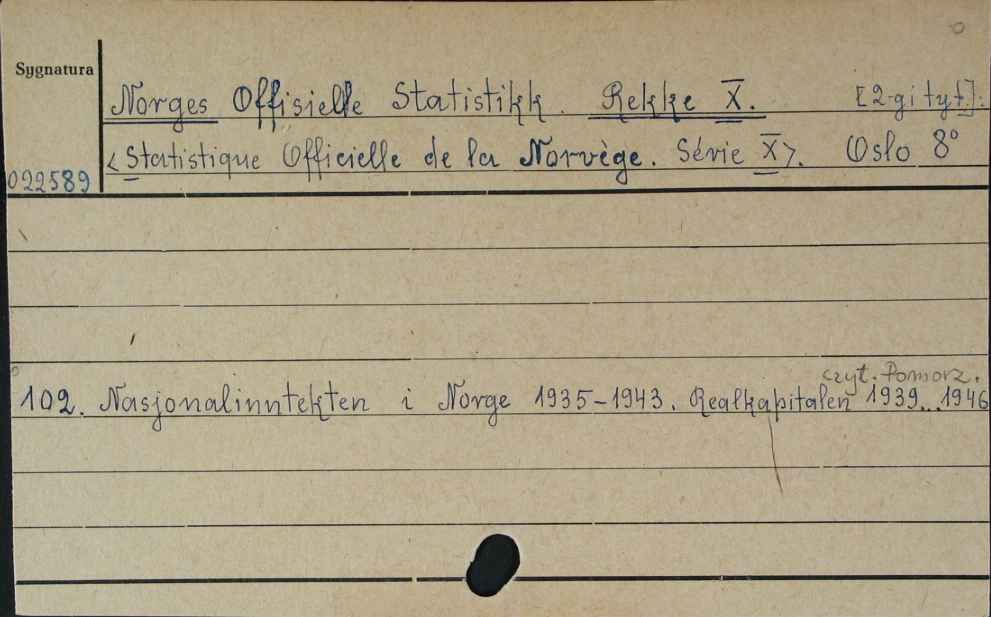 Sygnatura
Norges Offisielle Statistikk. Rekke X. [2-gi tyt.]:
<Statistique Officielle de la Norvège. Série X>. Oslo 8°
022589
czyt. Pomorz.
102. Nasjonalinntekten i Norge 1935-1943. Realkapitalen 1939...1946